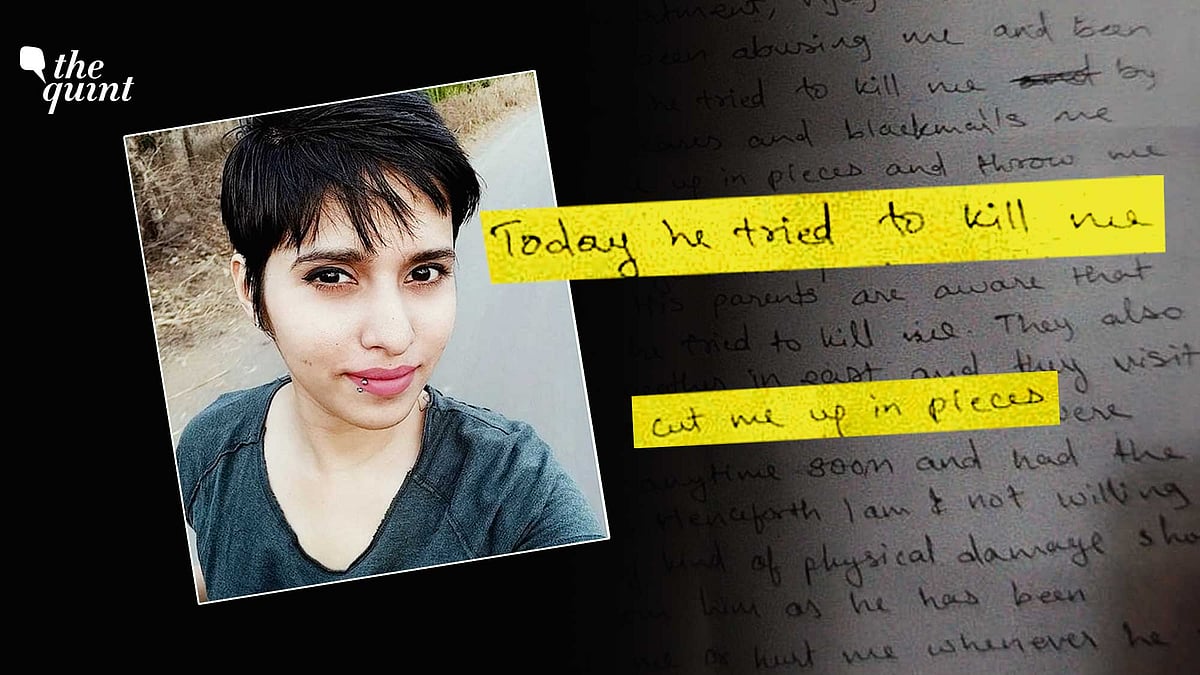 the
quint
been abusing me and been
he tried to kill me and by
and blackmails me
up in pieces and throw me
Today he tried to kill me
His parents are aware that
he tried to kill me. They also
in past and they visit
cut me up in pieces
were
anytime soon and had the
Henceforth I am not willing
kind of physical damage
him as he has been
or hurt me whenever he